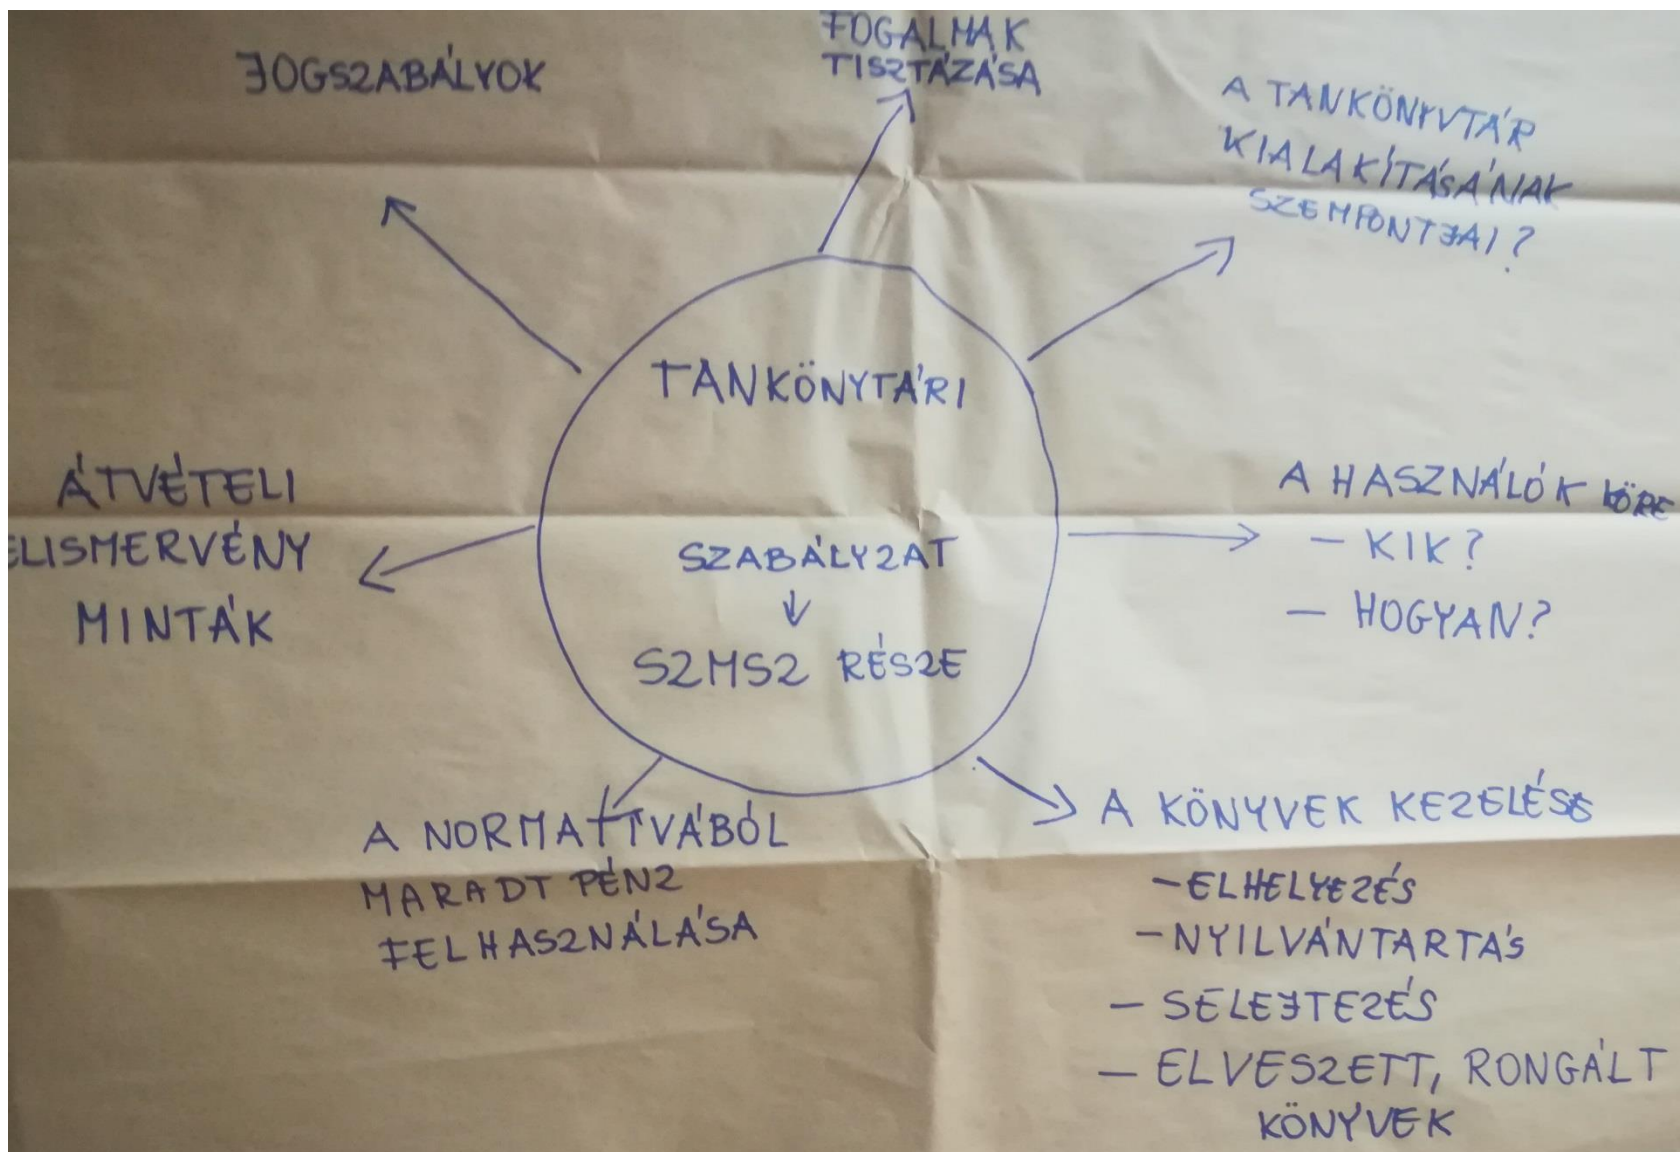 JOGSZABÁLYOK
FOGALMAK
TISZTÁZÁSA
A TANKÖNYVTÁR
KIALAKÍTÁSÁNAK
SZEMPONTJAI?
TANKÖNYTÁRI
SZABÁLYZAT
↓
SZMSZ RÉSZE
ÁTVÉTELI
ELISMERVÉNY
MINTÁK
A HASZNÁLÓK KÖRE
- KIK?
- HOGYAN?
A NORMATÍVÁBÓL
MARADT PÉNZ
FELHASZNÁLÁSA
A KÖNYVEK KEZELÉSE
- ELHELYEZÉS
- NYILVÁNTARTÁS
- SELEJTEZÉS
- ELVESZETT, RONGÁLT
KÖNYVEK